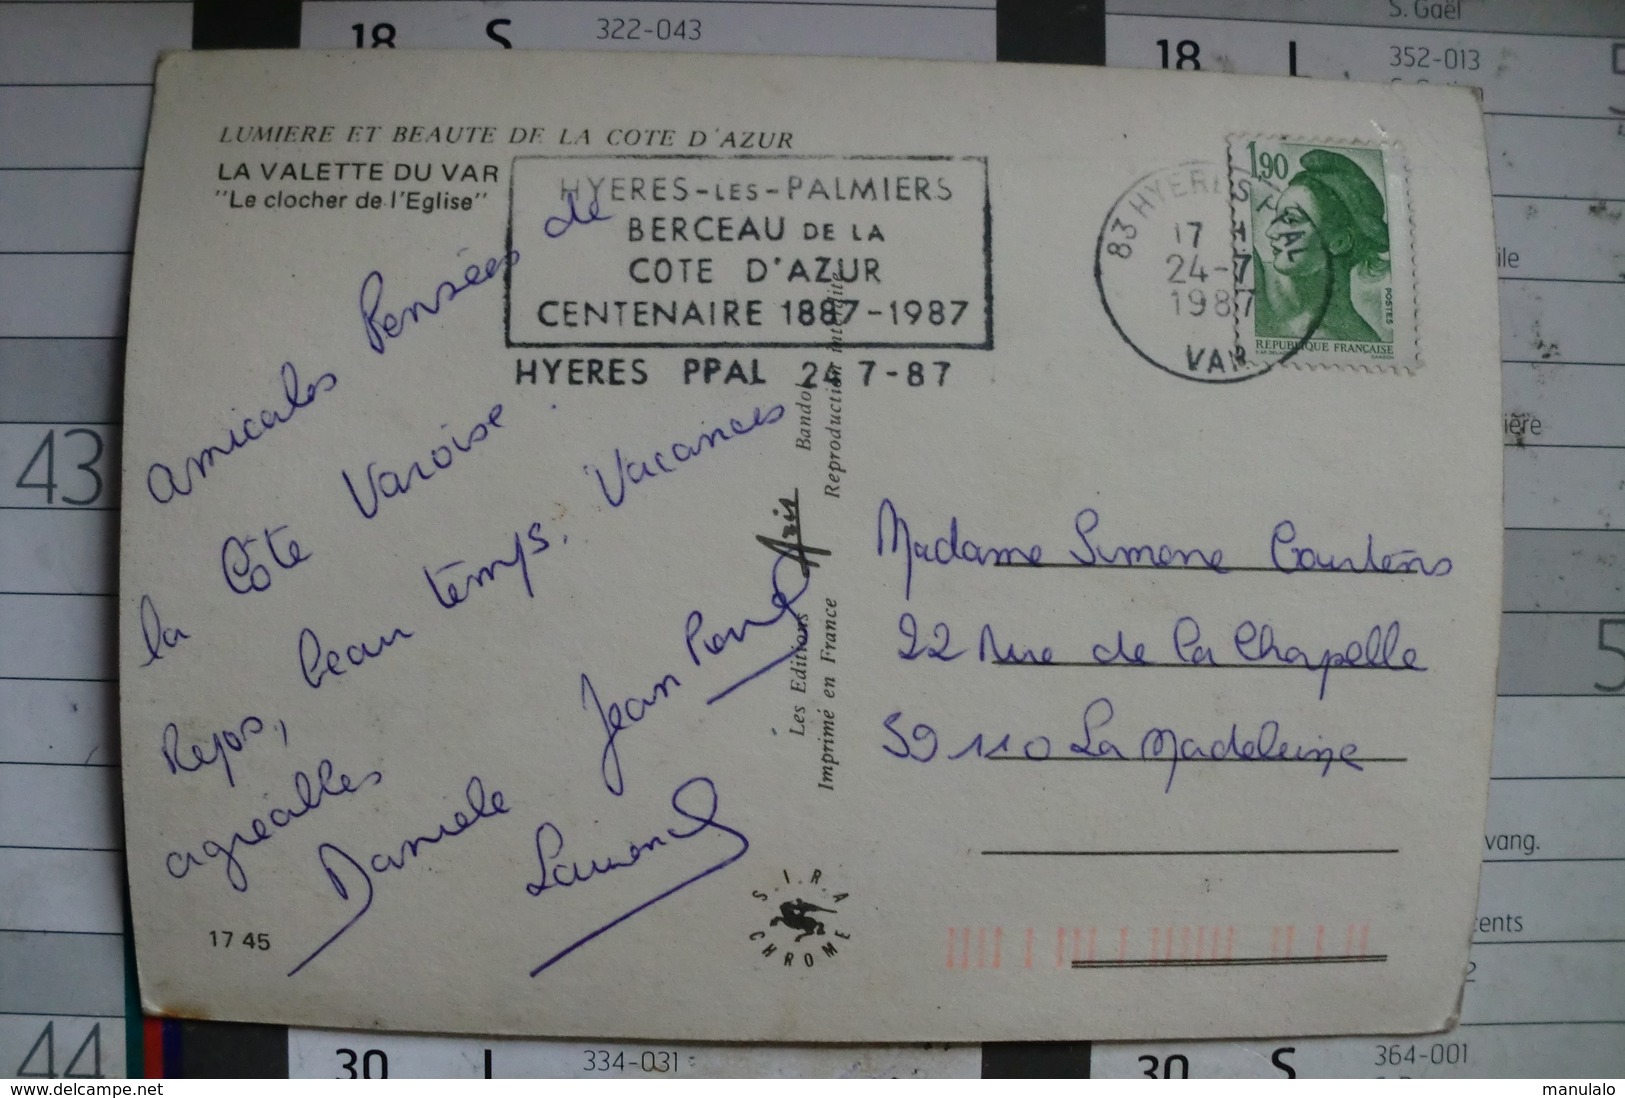 S. Gaël
18 S 322-043
18 L 352-013
LUMIERE ET BEAUTE DE LA COTE D'AZUR
LA VALETTE DU VAR
"Le clocher de l'Eglise"
HYERES-LES-PALMIERS
BERCEAU DE LA
COTE D'AZUR
CENTENAIRE 1887-1987
HYERES PPAL 24 7-87
83 HYERES PPAL
17
24-7
1987
VAR
1,90
POSTES
REPUBLIQUE FRANÇAISE
amicales Pensées de
la Côte Varoise.
Repos, beau temps. Vacances
agréables
Danièle Jean Pierre
Laurence
Les Editions Aris Bandol
Imprimé en France Reproduction interdite
Madame Simone Courtens
22 Rue de la Chapelle
59110 La Madeleine
17 45
S.I.R.A
CHROME
43
44
5
ile
ière
vang.
cents
2
30 L 334-031
30 S 364-001
www.delcampe.net
manulalo